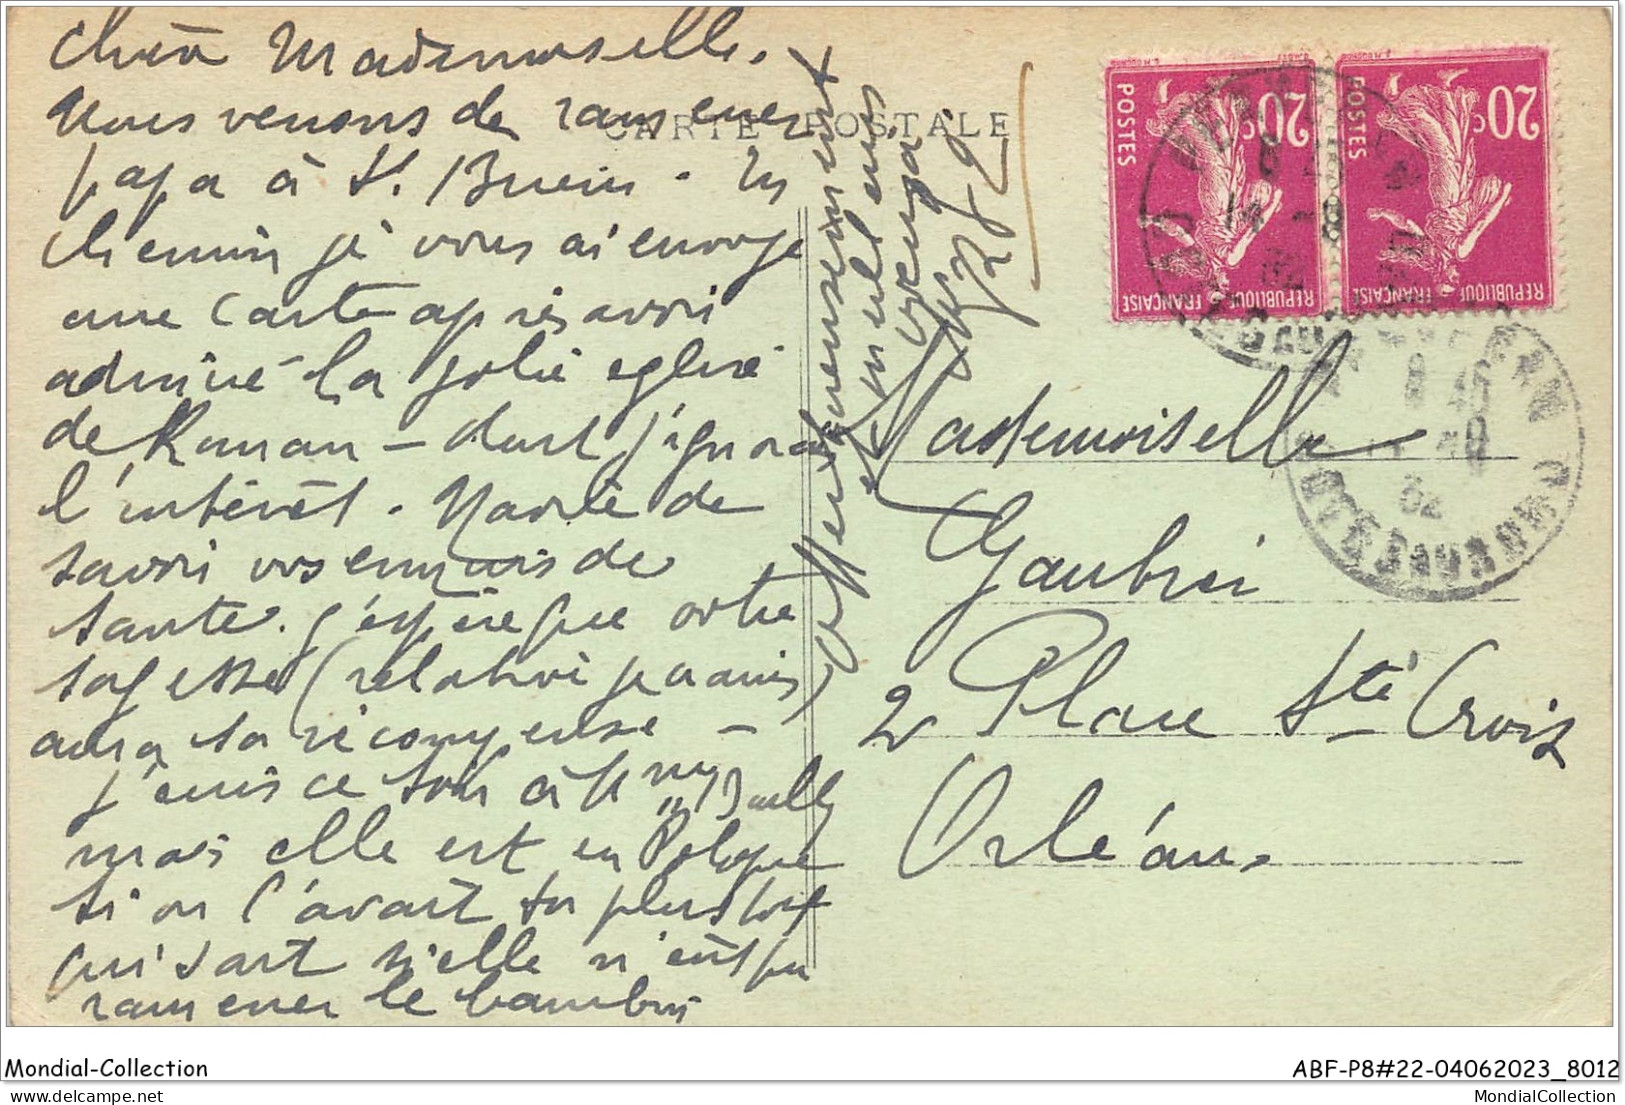 Chère Mademoiselle,
Nous venons de ramener
CARTE POSTALE
papa à St. Brieuc. En
chemin je vous ai envoyé
une carte après avoir
admiré la jolie eglise
de Renan – dont j'ignorais
l'intérêt. Navrée de
savoir vos ennuis de
santé. J'espère que votre
sagesse (relative jamais)
aura sa récompense –
j'écris ce soir à Mme Bailly
mais elle est en Pologne
si on l'avait su plus tôt
qui sait si elle n'eût pu
ramener le bambin
Affectueusement
et meilleurs
Mademoiselle
Gaubrei
2 Place Ste Croix
Orléans
POSTES 20c
REPUBLIQUE FRANÇAISE
POSTES 20c
REPUBLIQUE FRANÇAISE
Mondial-Collection
ABF-P8#22-04062023_8012
mondial-collection
MondialCollection